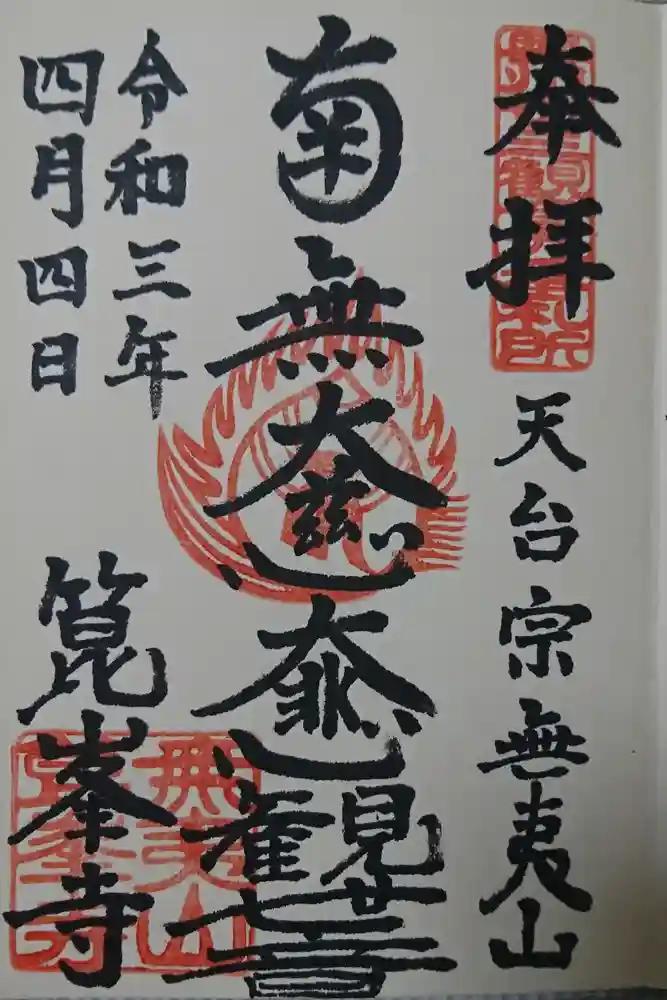 奉拝
天台宗無夷山
南無大慈大悲觀世音
令和三年
四月四日
箟峯寺
無夷山
箟峯寺